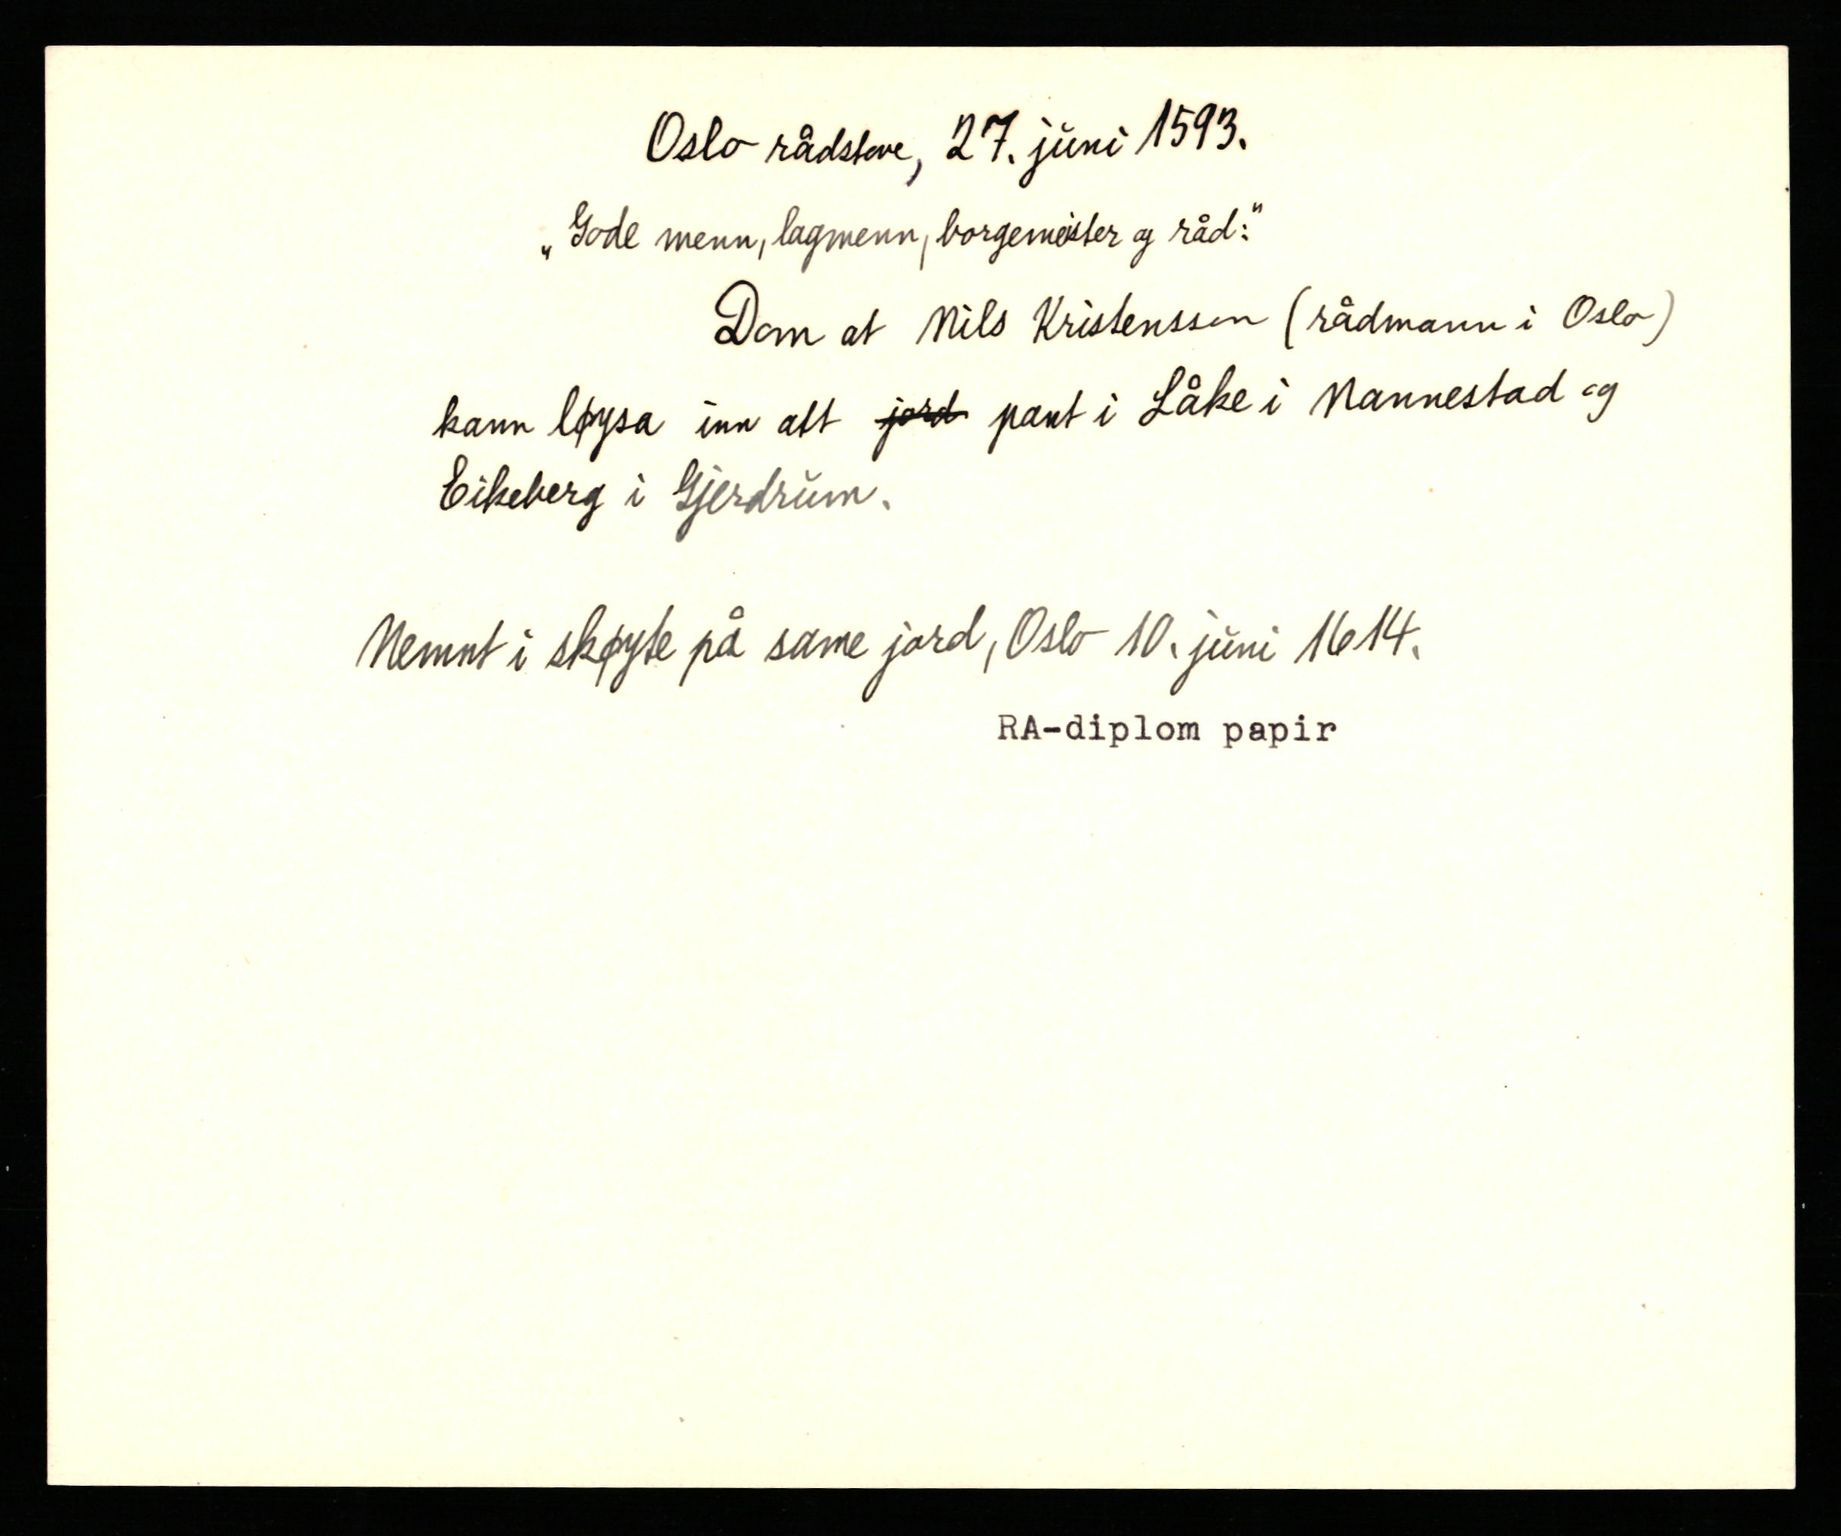 Oslo rådstove, 27. juni 1593.
„Gode menn, lagmenn, borgemeister og råd:"
Dom at Nils Kristensson (rådmann i Oslo)
kann løysa inn att jord pant i Låke i Nannestad og
Eikeberg i Gjerdrum.
Nemnt i skøyte på same jord, Oslo 10. juni 1614.
RA-diplom papir